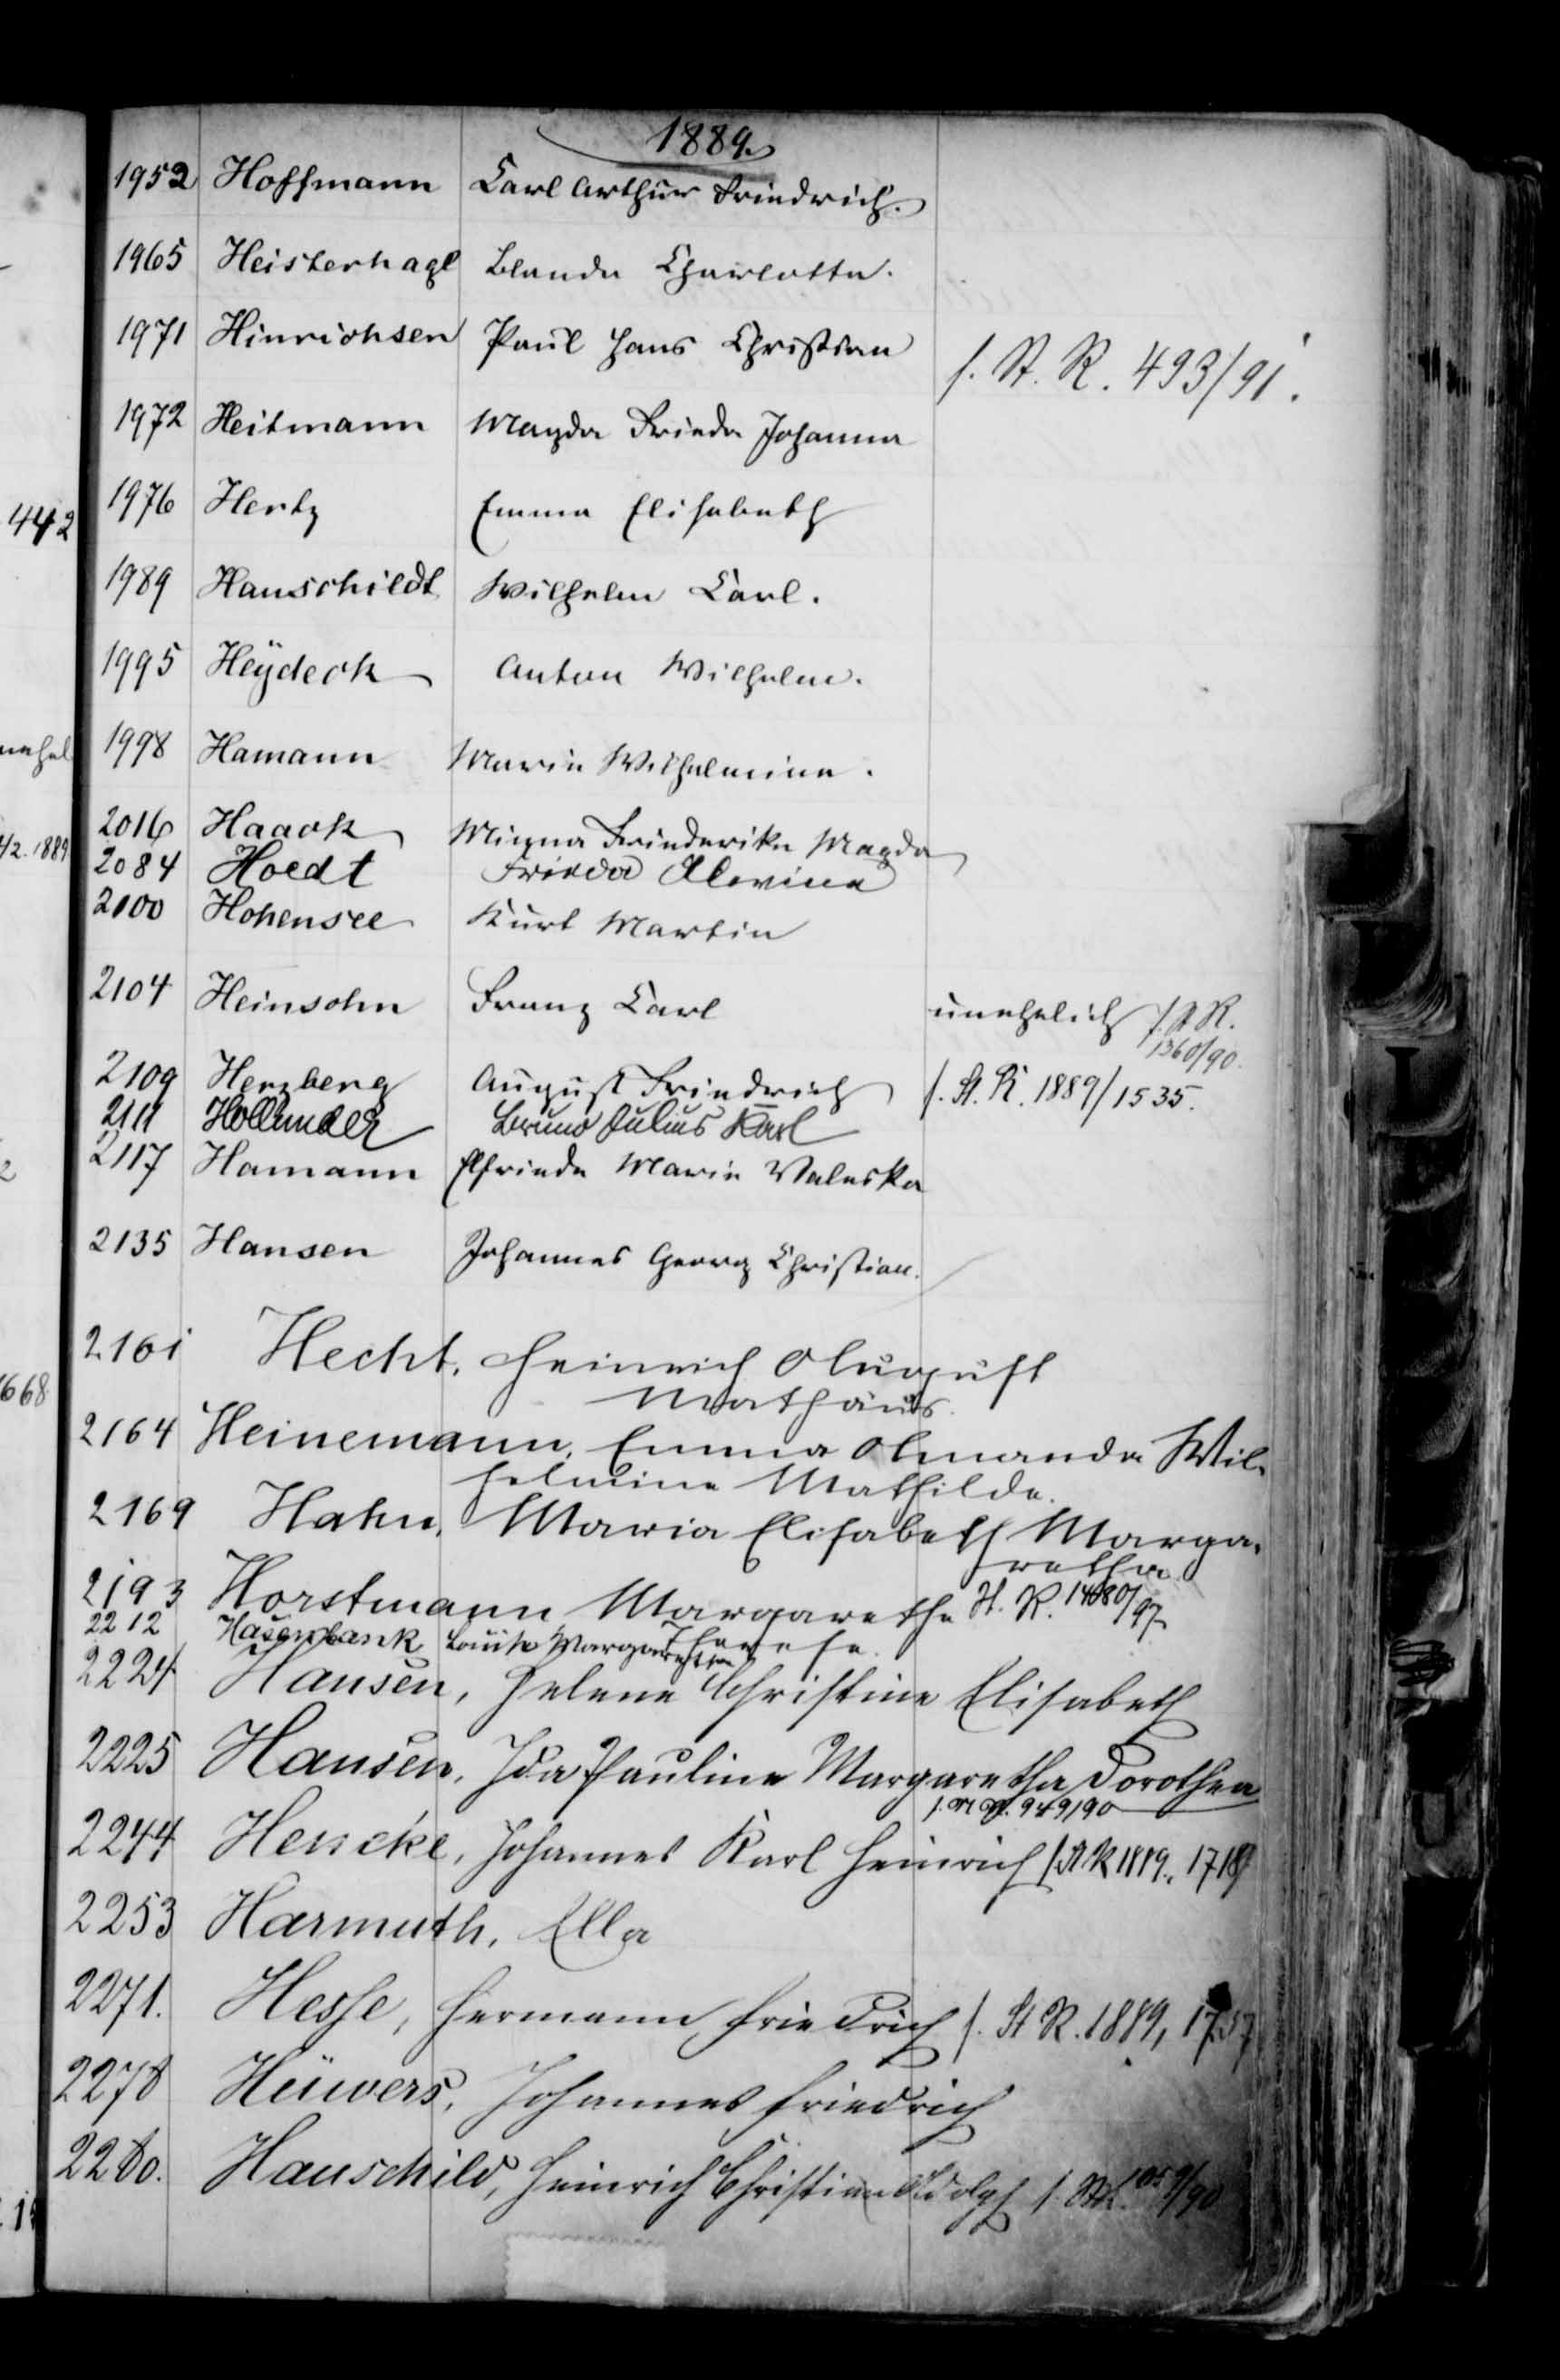 1889.
1952 Hoffmann Carl Arthur Friedrich.
1965 Heisterhagl Blanda Charlotte.
1971 Hinrichsen Paul Hans Christian f. St. R. 493/91.
1972 Heitmann Magda Frieda Johanna
442
1976 Hertz Emma Elisabeth
1989 Hauschildt Wilhelm Carl.
1995 Heÿdeck Anton Wilhelm.
1998 Hamann Marie Wilhelmine.
2016 Haack Minna Friederike Magda
2084 Hoedt Frieda Alwine
2100 Hohensee Kurt Martin
2104 Heinsohn Franz Carl unehelich f. St R.
1360/90.
2109 Herzberg August Friedrich f. St. R. 1889/1535.
2111 Hollender Bruno Julius Karl
2117 Hamann Elfriede Marie Valeska
2135 Hansen Johannes Georg Christian.
2161 Hecht, Heinrich August
Mathäus.
2164 Heinemann, Emma Amanda Wil-
helmine Mathilde.
2169 Hahn, Maria Elisabeth Marga-
retha
2193 Horstmann Margarethe St. R. 1480/97
Therese.
2212 Hasenbank Louise Margaretha
2224 Hansen, Helene Christine Elisabeth
2225 Hansen, Ida Pauline Margaretha Dorothea
949/90
2244 Hencke, Johannes Karl Heinrich f. St R 1889, 1718
2253 Harmuth, Ella
2271. Hesse, Hermann Friedrich f. St R. 1889, 1757
2278 Hüwers, Johannes Friedrich
2280. Hauschild, Heinrich Christian Adolph